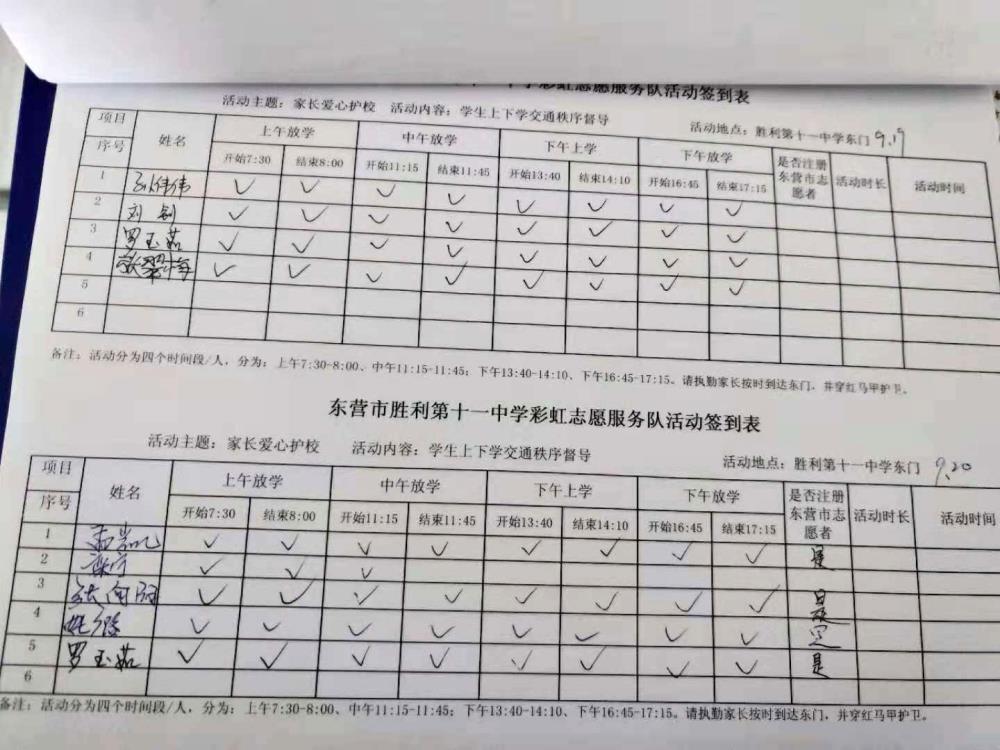 中学彩虹志愿服务队活动签到表
活动主题：家长爱心护校 活动内容：学生上下学交通秩序督导 活动地点：胜利第十一中学东门 9.17
项目 序号 姓名 上午放学 中午放学 下午上学 下午放学 是否注册东营市志愿者 活动时长 活动时间
开始7:30 结束8:00 开始11:15 结束11:45 开始13:40 结束14:10 开始16:45 结束17:15
1 孙伟伟 ✓ ✓ ✓ ✓ ✓ ✓ ✓ ✓
2 刘剑 ✓ ✓ ✓ ✓ ✓ ✓ ✓ ✓
3 罗玉茹 ✓ ✓ ✓ ✓ ✓ ✓ ✓ ✓
4 ✓ ✓ ✓ ✓ ✓ ✓ ✓ ✓
5
6
备注：活动分为四个时间段/人，分为：上午7:30-8:00、中午11:15-11:45；下午13:40-14:10、下午16:45-17:15。请执勤家长按时到达东门，并穿红马甲护卫。
东营市胜利第十一中学彩虹志愿服务队活动签到表
活动主题：家长爱心护校 活动内容：学生上下学交通秩序督导 活动地点：胜利第十一中学东门 9.20
项目 序号 姓名 上午放学 中午放学 下午上学 下午放学 是否注册东营市志愿者 活动时长 活动时间
开始7:30 结束8:00 开始11:15 结束11:45 开始13:40 结束14:10 开始16:45 结束17:15
1 ✓ ✓ ✓ ✓ ✓ ✓ ✓ ✓ 是
2 ✓ ✓ ✓
3 ✓ ✓ ✓ ✓ ✓ ✓ ✓ ✓ 是
4 ✓ ✓ ✓ ✓ ✓ ✓ ✓ ✓ 是
5 罗玉茹 ✓ ✓ ✓ ✓ ✓ ✓ ✓ ✓ 是
6
备注：活动分为四个时间段/人，分为：上午7:30-8:00、中午11:15-11:45；下午13:40-14:10、下午16:45-17:15。请执勤家长按时到达东门，并穿红马甲护卫。